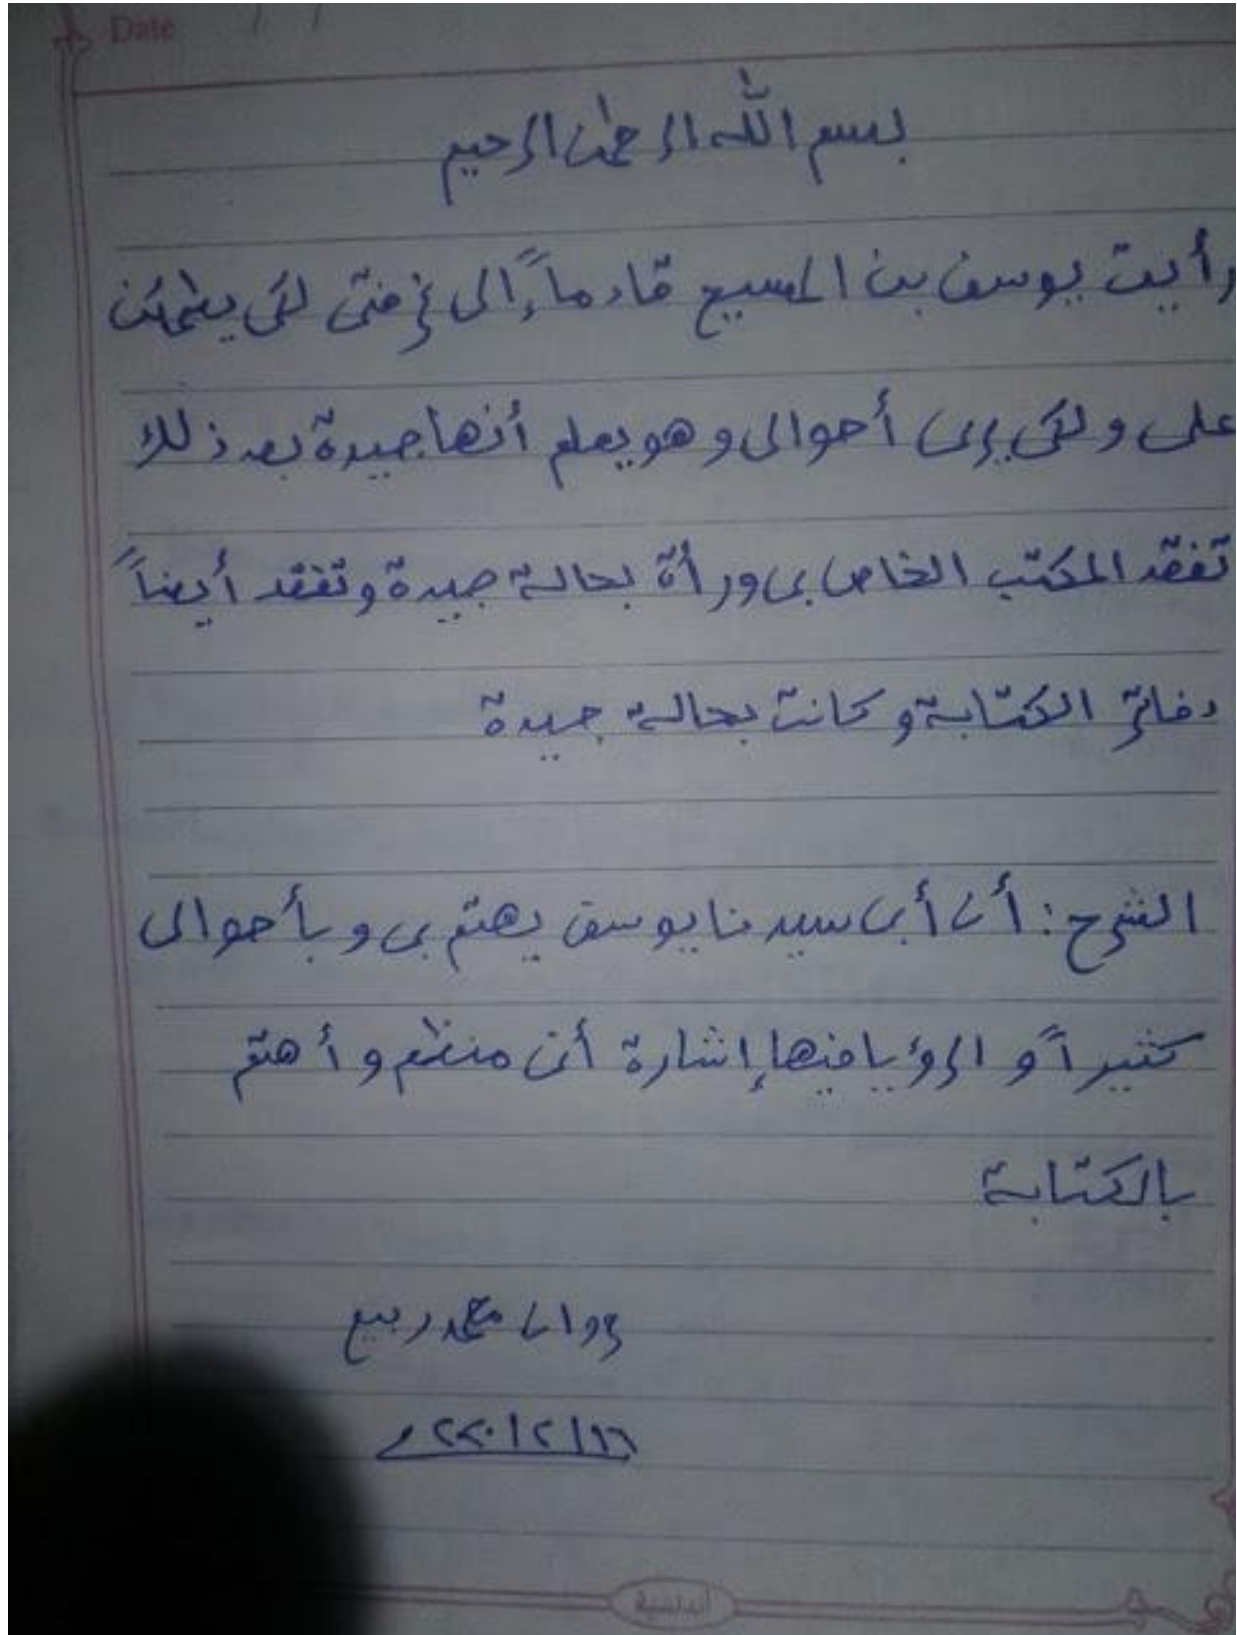 Date / /
بسم الله الرحمن الرحيم
رأيت يوسف بن المسيح قادماً إلى غرفتى لكى يطمئن
على ولكى يرى أحوالى وهو يعلم أنها جيدة بعد ذلك
تفقد المكتب الخاص بى ورأة بحالة جيدة وتفقد أيضاً
دفاتر الكتابة وكانت بحالة جيدة
الشرح : أن أبى سيدنا يوسف يهتم بى وبأحوالى
كثيراً و الرؤيا فيها إشارة أنى منظم وأهتم
بالكتابة
مروان محمد ربيع
١٦/٢/٢٢٠ م